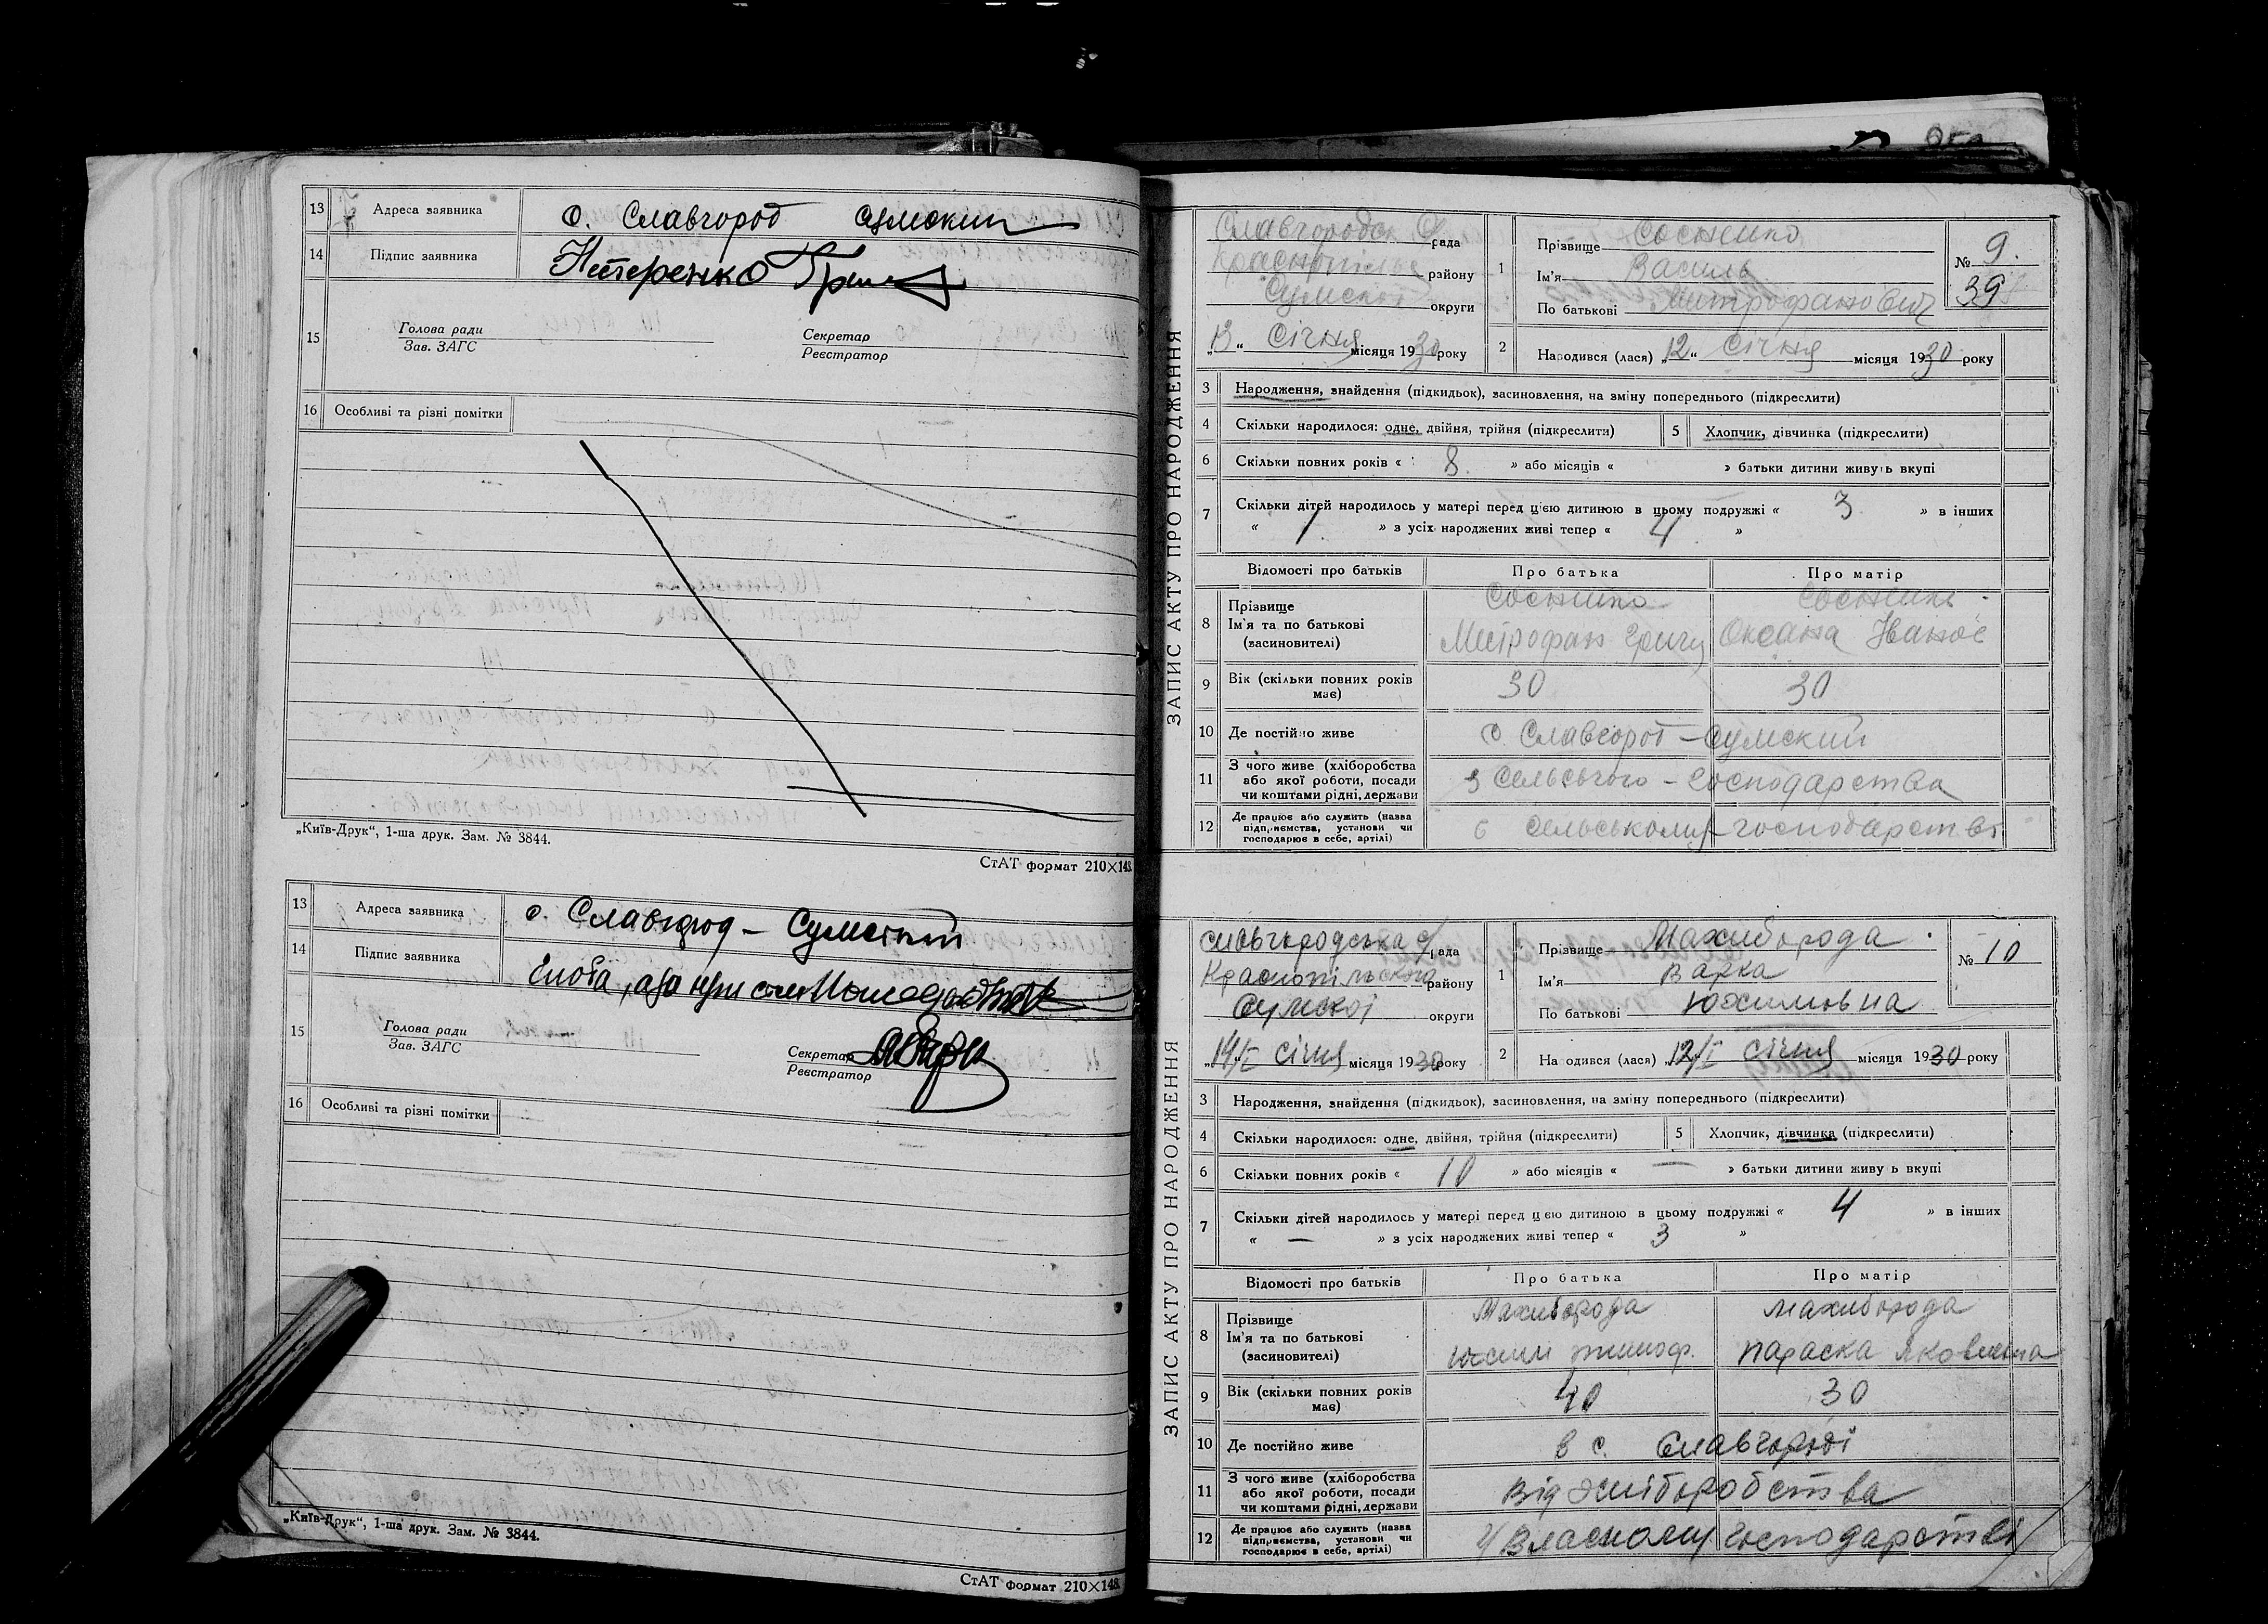 13 Адреса заявника с. Славгород Сумский
14 Підпис заявника Нестеренко
15 Голова ради Секретар
Зав. ЗАГС Реєстратор
16 Особливі та різні помітки
„Київ-Друк“, 1-ша друк. Зам. № 3844.
СтАТ формат 210×148
13 Адреса заявника с. Славгород – Сумский
14 Підпис заявника
15 Голова ради Секретар
Зав. ЗАГС Реєстратор
16 Особливі та різні помітки
„Київ-Друк“, 1-ша друк. Зам. № 3844.
СтАТ формат 210×148
ЗАПИС АКТУ ПРО НАРОДЖЕННЯ
Славгородск С рада
Краснопільс району
Сумской округи
„13“ Січня місяця 1930 року
1 Прізвище Соснипко
Ім'я Василь
По батькові Митрофанович
№ 9.
39
2 Народився (лася) „12“ Січня місяця 1930 року
3 Народження, знайдення (підкидьок), засиновлення, на зміну попереднього (підкреслити)
4 Скільки народилося: одне, двійня, трійня (підкреслити) 5 Хлопчик, дівчинка (підкреслити)
6 Скільки повних років « 8 » або місяців « » батьки дитини живуть вкупі
7 Скільки дітей народилось у матері перед цією дитиною в цьому подружжі « 3 » в інших
« 1 » з усіх народжених живі тепер « 4 »
Відомості про батьків Про батька Про матір
8 Прізвище
Ім'я та по батькові
(засиновителі)
Митрофан Григ Оксана Іванов
9 Вік (скільки повних років має) 30 30
10 Де постійно живе с. Славгорот – Сумский
11 З чого живе (хліборобства або якої роботи, посади чи коштами рідні, держави з Сельського – господарства
12 Де працює або служить (назва підприємства, установи чи господарює в себе, артілі) в сельському – господарстві
ЗАПИС АКТУ ПРО НАРОДЖЕННЯ
Славгородська с/рада
Краснопільского району
Сумской округи
„14/I“ січня місяця 1930 року
1 Прізвище Махиборода
Ім'я Варка
По батькові Юхимовна
№ 10
2 Народився (лася) „12/I“ січня місяця 1930 року
3 Народження, знайдення (підкидьок), засиновлення, на зміну попереднього (підкреслити)
4 Скільки народилося: одне, двійня, трійня (підкреслити) 5 Хлопчик, дівчинка (підкреслити)
6 Скільки повних років « 10 » або місяців « — » батьки дитини живу ь вкупі
7 Скільки дітей народилось у матері перед цією дитиною в цьому подружжі « 4 » в інших
« — » з усіх народжених живі тепер « 3 »
Відомості про батьків Про батька Про матір
8 Прізвище Махиборода Махиборода
Ім'я та по батькові
(засиновителі)
Юхим Тимоф. Параска Яковлевна
9 Вік (скільки повних років має) 40 30
10 Де постійно живе в с. Славгороді
11 З чого живе (хліборобства або якої роботи, посади чи коштами рідні, держави Від хліборобства
12 Де працює або служить (назва підприємства, установи чи господарює в себе, артілі) у Власному господарстві